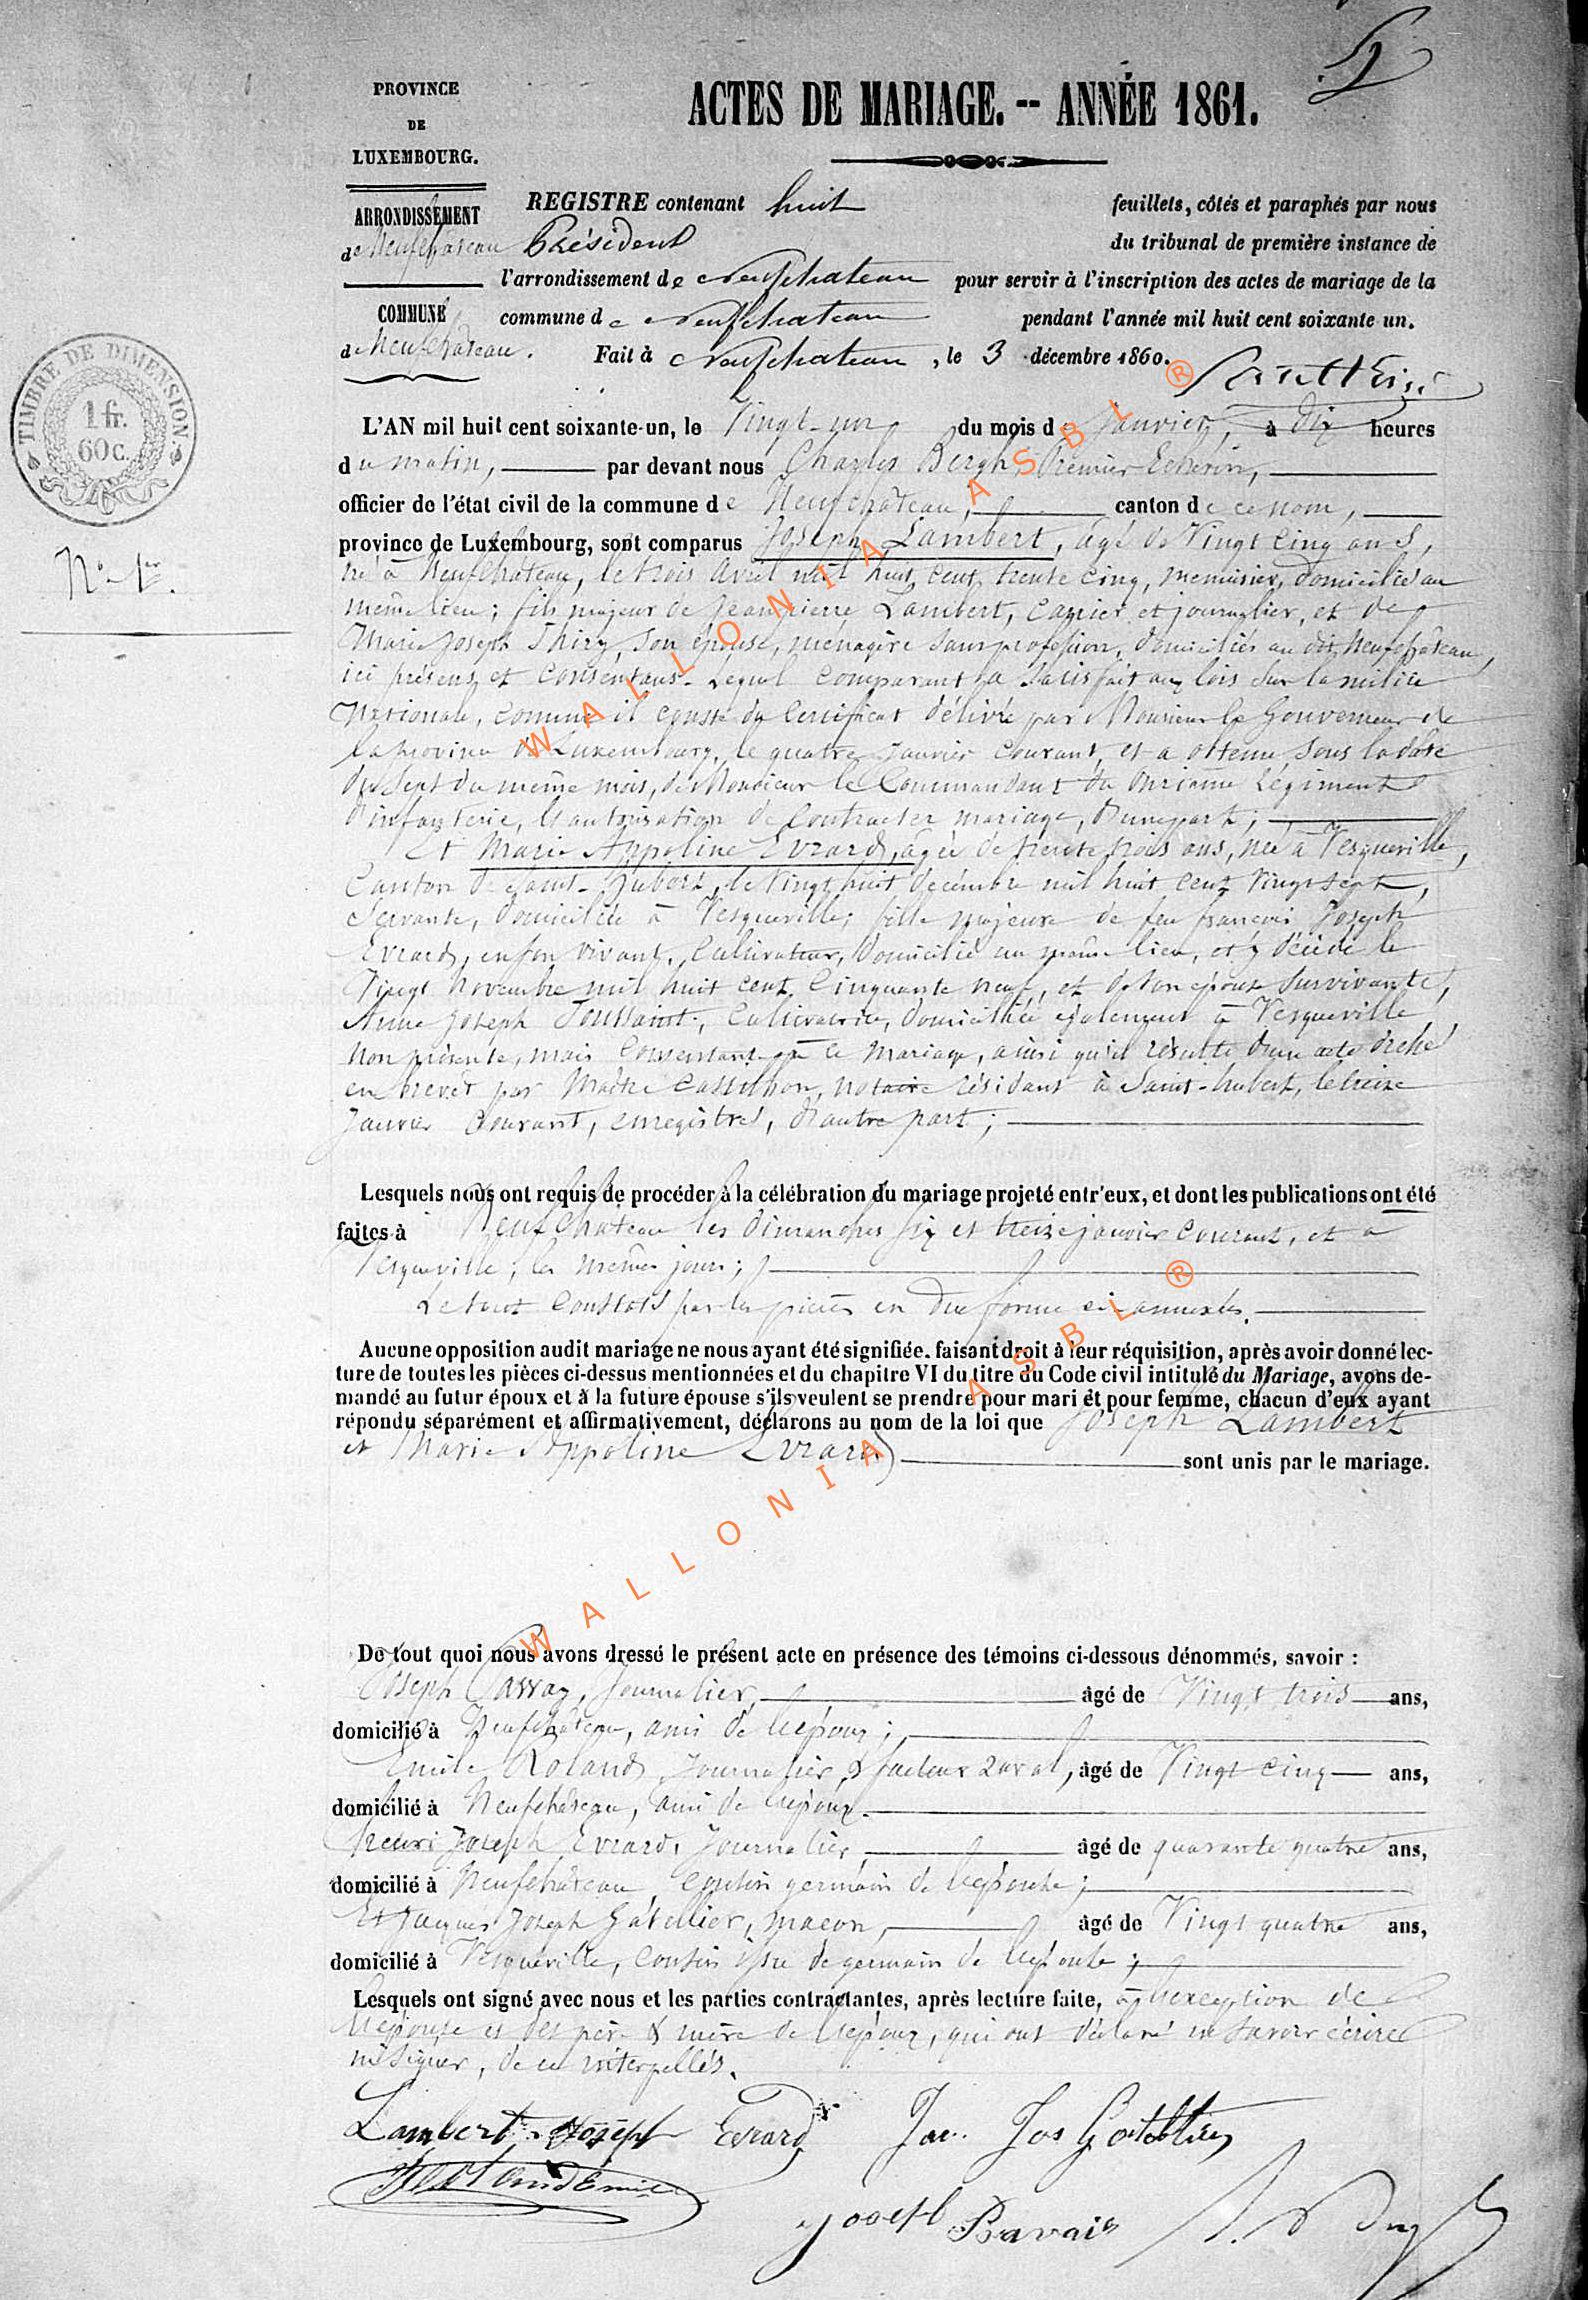 PROVINCE
DE
LUXEMBOURG.
ARRONDISSEMENT
de Neufchâteau
COMMUNE
de Neufchâteau.
ACTES DE MARIAGE. -- ANNÉE 1861.
REGISTRE contenant huit feuillets, côtés et paraphés par nous
Président du tribunal de première instance de
l'arrondissement de Neufchateau pour servir à l'inscription des actes de mariage de la
commune de Neufchateau pendant l'année mil huit cent soixante un.
Fait à Neufchateau, le 3 décembre 1860.
TIMBRE DE DIMENSION.
1 fr.
60 c.
N° 1er.
L'AN mil huit cent soixante-un, le Vingt-un du mois de Janvier, à dix heures
du matin, par devant nous Charles Bergh, Premier Echevin,
officier de l'état civil de la commune de Neufchâteau, canton de ce nom,
province de Luxembourg, sont comparus Joseph Lambert, âgé de Vingt cinq ans,
né à Neufchateau, le trois avril mil huit cent trente cinq, menuisier, domicilié au
même lieu; fils majeur de Jean pierre Lambert, et journalier, et de
Marie Joseph Thiry, son épouse, ménagère sans profession, domiciliés au dit Neufchâteau,
ici présens et consentans. Lequel comparant a satisfait aux lois sur la milice
Nationale, comme il conste du Certificat délivré par Monsieur le Gouverneur de
la province de Luxembourg, le quatre Janvier courant, et a obtenu, sous la date
du sept du même mois, de Monsieur le Commandant du onzième Régiment
d'infanterie, l'autorisation de contracter mariage, d'une part;
Et Marie Appoline Evrard, âgée de trente trois ans, née à Vesqueville,
Canton de Saint-Hubert, le vingt huit décembre mil huit cent vingt sept,
Servante, domiciliée à Vesqueville; fille majeure de feu françois Joseph
Evrard, en son vivant, Cultivateur, domicilié au même lieu, et y décédé le
Vingt Novembre mil huit cent cinquante neuf, et de son épouse survivante,
Anne Joseph Toussaint, Cultivatrice, domiciliée également à Vesqueville,
non présente, mais consentant à ce mariage, ainsi qu'il résulte d'un acte
en brevet par Maître Castilhon, notaire résidant à Saint-hubert, le treize
Janvier courant, enregistré, d'autre part;
Lesquels nous ont requis de procéder à la célébration du mariage projeté entr'eux, et dont les publications ont été
faites à Neufchâteau les dimanches six et treize janvier courant, et à
Vesqueville, les mêmes jours;
Le tout constaté par les pièces en due forme ci-annexées.
Aucune opposition audit mariage ne nous ayant été signifiée. faisant droit à leur réquisition, après avoir donné lec-
ture de toutes les pièces ci-dessus mentionnées et du chapitre VI du titre du Code civil intitulé du Mariage, avons de-
mandé au futur époux et à la future épouse s'ils veulent se prendre pour mari et pour femme, chacun d'eux ayant
répondu séparément et affirmativement, déclarons au nom de la loi que Joseph Lambert
et Marie Appoline Evrard sont unis par le mariage.
De tout quoi nous avons dressé le présent acte en présence des témoins ci-dessous dénommés, savoir :
Joseph Journalier, âgé de Vingt trois ans,
domicilié à Neufchâteau, ami de l'époux;
Emile Roland, Journalier & facteur rural, âgé de Vingt cinq ans,
domicilié à Neufchâteau, ami de l'époux.
Henri Joseph Evrard, Journalier, âgé de quarante quatre ans,
domicilié à Neufchâteau, cousin germain de l'épouse;
Et Jacques Joseph Gatellier, maçon, âgé de Vingt quatre ans,
domicilié à Vesqueville, cousin issu de germain de l'épouse;
Lesquels ont signé avec nous et les parties contractantes, après lecture faite, à l'exception de
l'épouse et des père & mère de l'époux, qui ont déclaré ne savoir écrire
ni signer, de ce interpellés.
Lambert Joseph Evrard Jac. Jos Gatellier
Roland Emile
Joseph
WALLONIA ASBL ®
WALLONIA ASBL ®